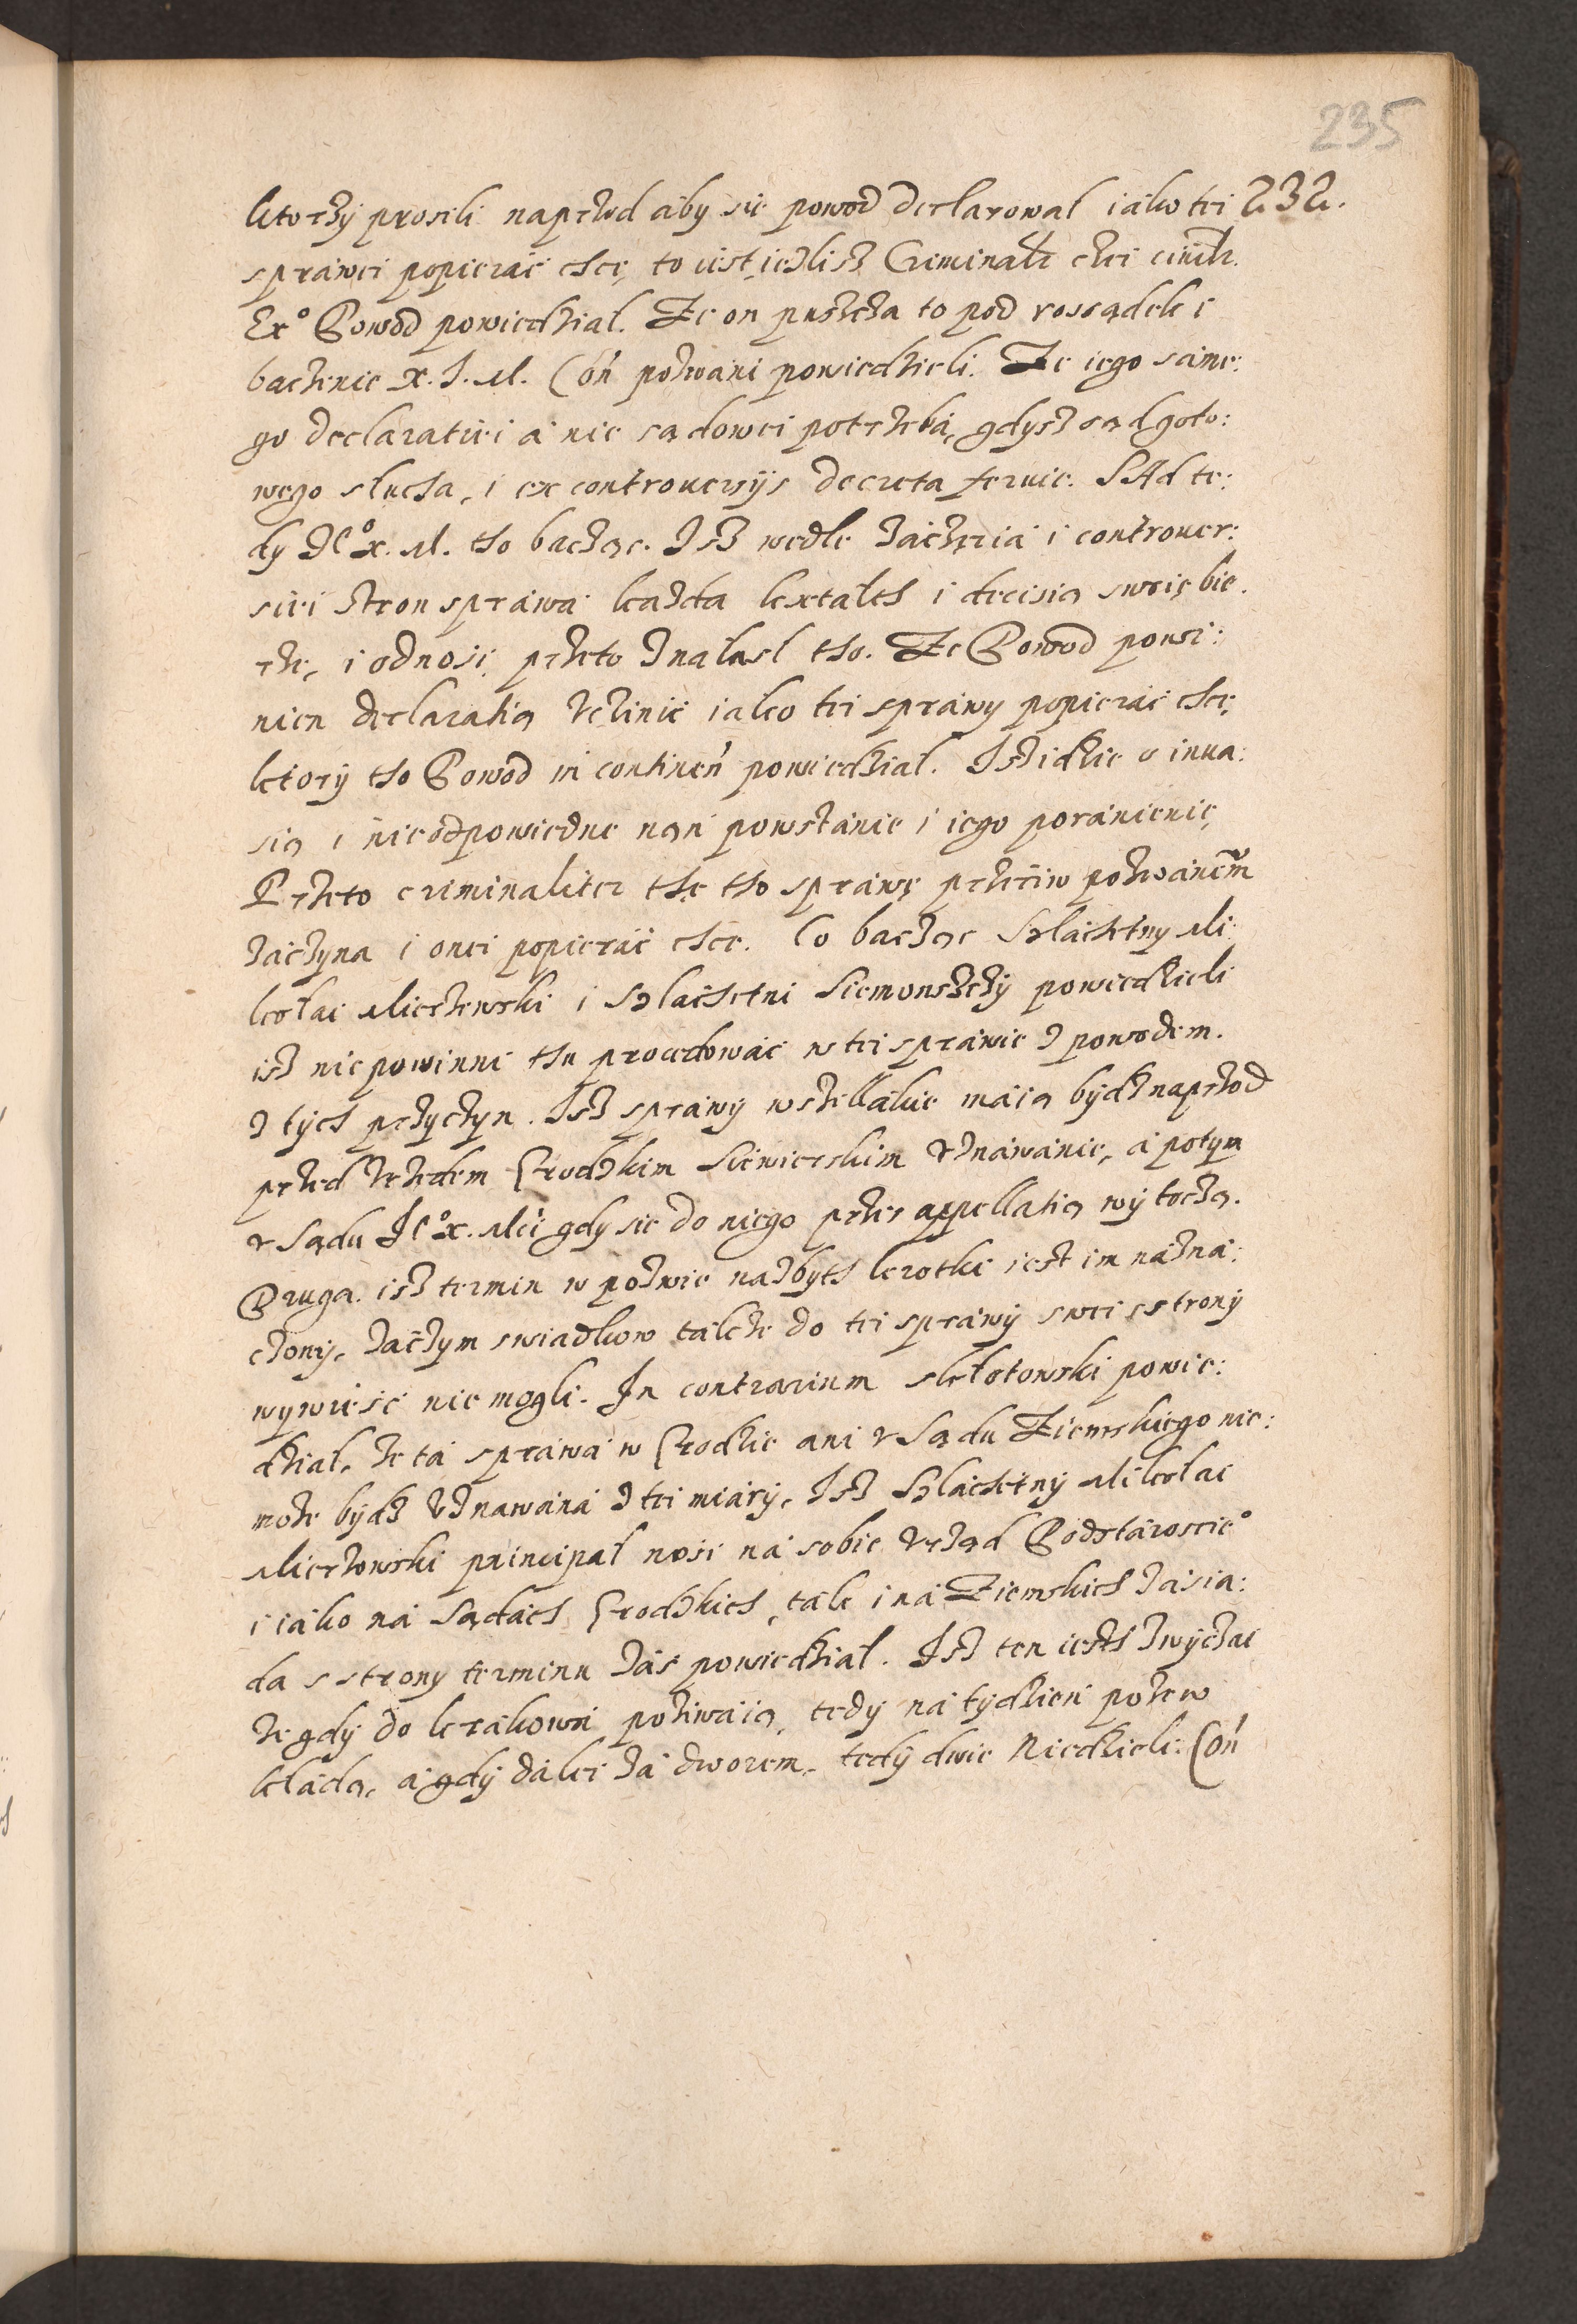 235
ktorzÿ prosili naprzod áby sie powod declarowal iáko tei 232.
spráwei popieráć chce, to iest iezlisz Criminalr czei ciuilr.
Exo Powod powiedzial. Ze on puszcza to pod rossądek i
baczenie X. J. M. Con pozwani powiedzieli. Ze iego sáme:
go declaratiei á nie sądowei potrzebá, gdysz sąd goto:
wego slucha, i ex controuersÿs decreta feruie. SAd te:
dy Jeo x. M. tho bacząc. Isz wedle záczęciá i controuer:
siei stron spráwá kazda kxtalth i decisią swoię bie.
rze, i odnosi, przeto znalasl tho. Ze Powod powi:
nien declaratią vczinić iako tei spráwy popieráć chce,
ktorÿ tho Powod in continen powiedzial. Isz idzie o inua:
sią i nieodpowiedne nań powstánie i iego poránienie,
Przeto criminaliter thę tho spráwę przeciw pozwanem
záczyna i onei popieráć chce. Co bacząc Szláchetny Mi:
kolai Mierzewski i Szláchetni Siemonszczÿ powiedzieli
isz nie powinni thu procedowáć w tei spráwie z powodem.
z tÿch przyczyn. Isz spráwÿ wszellákie máią bÿdz naprzod
przed vrzedem Grodzkim Siewierskim vznáwánie, á potÿm
v Sądu Jeo x. Mci gdy sie do niego przes appellatią wÿtoczą.
Druga. isz termin w pozwie nazbyth krotki iest im názná:
czonÿ, záczym swiadkow tákze do tei spráwÿ swei s stronÿ
wywieść nie mogli. In contrarium Skłotowski powie:
dzial, ze tá spráwá w Grodzie ani v Sądu Ziemskiego nie:
moze bÿdz vznawáná z tei miárÿ, Isz Szláchetnÿ Mikolai
Mierzowski principal nosi ná sobie vrząd Podstárosciéo
i iáko ná Sądách Grodzkich, ták i ná Ziemskich zásia:
da s strony terminu zás powiedzial. Isz ten iesth zwÿczai
ze gdÿ do krákowá poziwáią, tedy ná tÿdzień pozew
kládą, á gdÿ dálei zá dworem, tedÿ dwie Niedzieli. Con